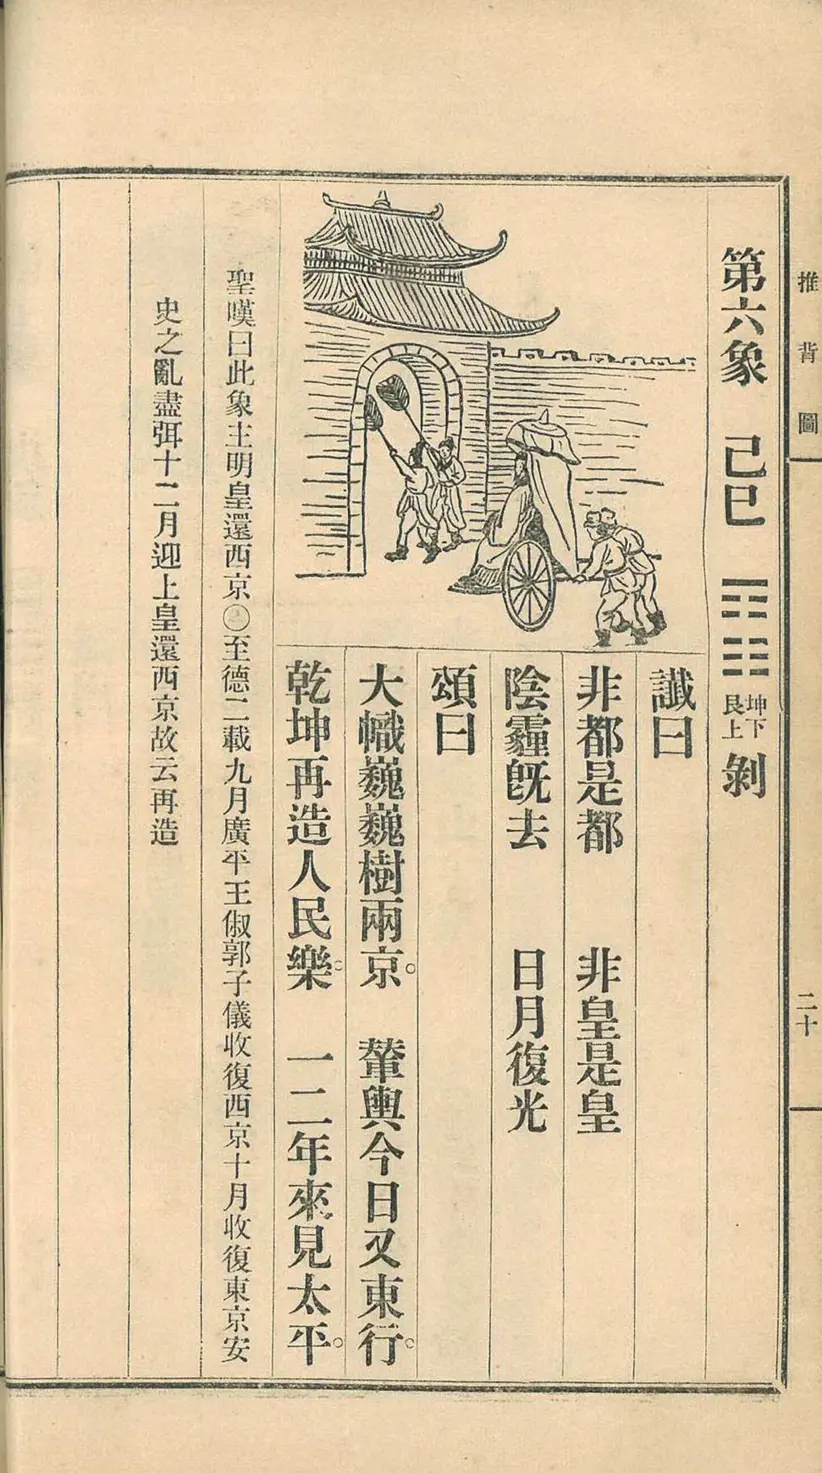 推背圖
二十
第六象 己巳 坤下艮上 剝
讖曰
非都是都 非皇是皇
陰霾旣去 日月復光
頌曰
大幟巍巍樹兩京。 輦輿今日又東行。
乾坤再造人民樂。 一二年來見太平。
聖嘆曰此象主明皇還西京〇至德二載九月廣平王俶郭子儀收復西京十月收復東京安
史之亂盡弭十二月迎上皇還西京故云再造